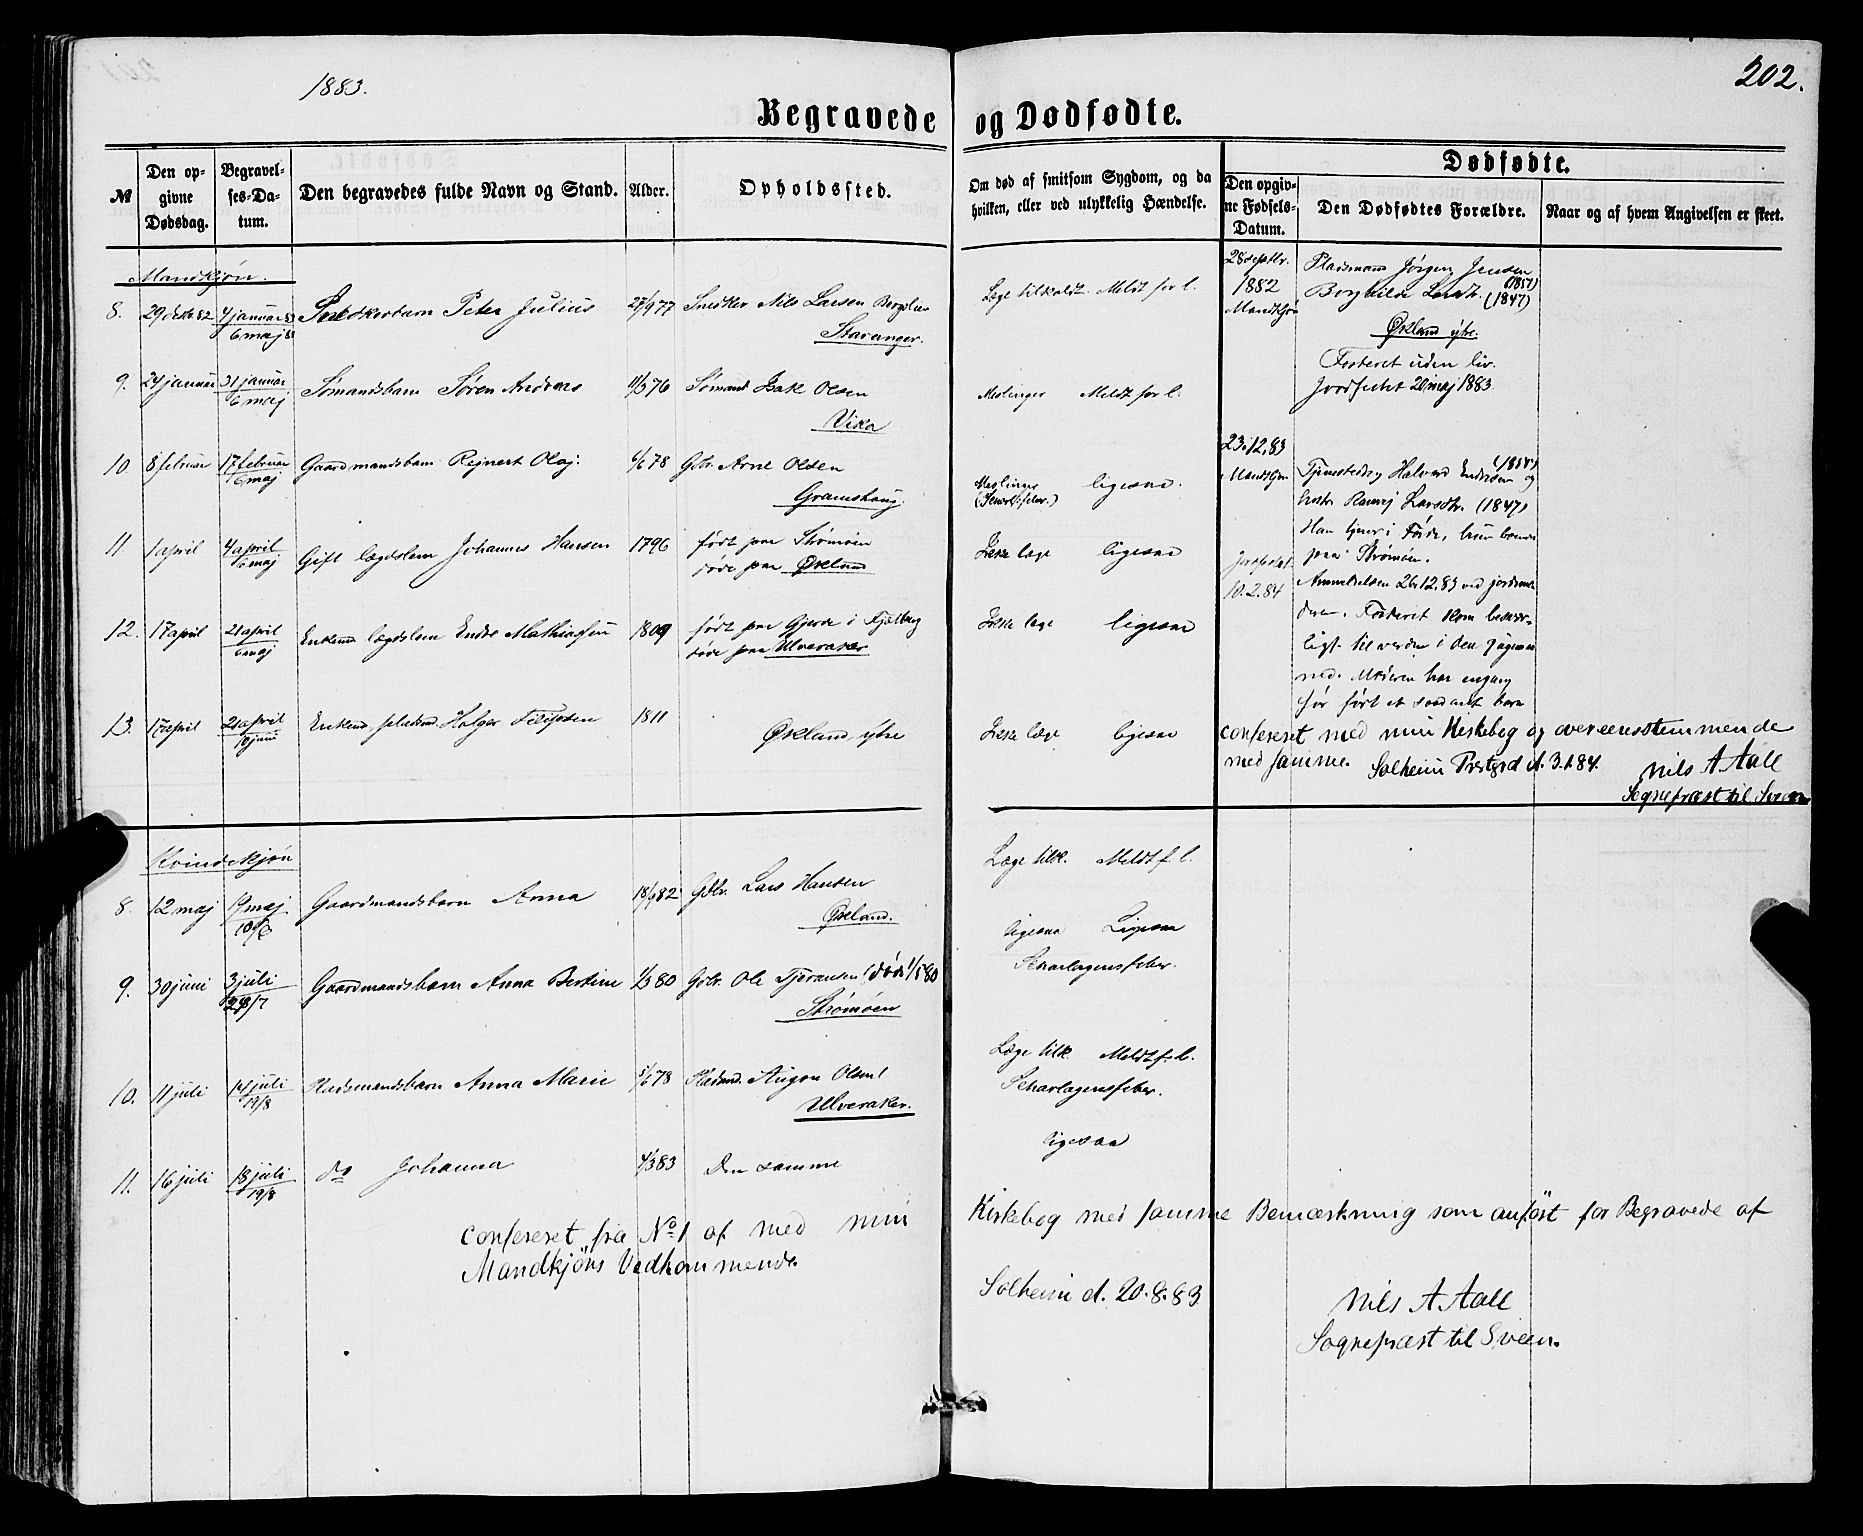 1883.
202.
Begravede og Dødfødte.
№
Den opgivne Dødsdag.
Begravelses-Datum.
Den begravedes fulde Navn og Stand.
Alder.
Opholdssted.
Om død af smitsom Sygdom, og da hvilken, eller ved ulykkelig Hændelse.
Dødfødte.
Den opgivne Fødsels-Datum.
Den Dødfødtes Forældre.
Naar og af hvem Angivelsen er skeet.
Mandkjøn.
8. 29 decbr 82 4 januar 83 Snedkerbarn Peter Julius 27/9 77 Snedker Nils Larsen
6 maj 83 Stavanger.
Læge tilkaldt. Meldt for l.
9. 24 januar 31 januar Sømandsbarn Søren Andreas 11/3 76 Sømand Isak Olsen
6 maj Vika
Meslinger Meldt for l.
10 8 februar 17 februar Gaardmandsbarn Rejnert Olaj. 6/6 78 Gbr. Arne Olsen
6 maj Gramshaug.
Meslinger ligesaa.
11 1 april 4 april Gift lægdslem Johannes Hansen 1796 født paa Strømøen
6 maj døde paa Økland
Ikke læge ligesaa
12. 17 april 21 april Enkemd lægdslem Endre Mathiassen 1809 født paa Gjerde i Fjelberg
6 maj døde paa Ulveraker
Ikke læge ligesaa
13. 17 april 21 april Enkemd. pladsmd. Holger Filipsen 1811
10 juni Økland, ytre
Ikke læge ligesaa
28 septbr. Pladsmand Jørgen Jensen
1882 (1857)
Mandkjøn Borghilde Larsdtr. (1847)
Økland ytre.
Fosteret uden liv.
Jordfæstet 20 maj 1883.
23.12.83
Mandkjøn Tjenestedr. Halvard Endresen og
hustr. Larsdtr. (1847)
Han tjener i Førde, hun boende
paa Strømøen.
Jordfæstet
10.2.84 Anmeldelsen 26.12.83 ved jordemo-
deren. Fosteret kom
ligt til verden i den
ned. Moderen har engang
før født et saadant barn
confereret med min Kirkebog og overeensstemmende
med samme. Solheim Prstgrd d. 3.1.84. Nils A. Aall
Sognepræst til Sveen
Kvindekjøn
8. 12 maj 19 maj Gaardmandsbarn Anna 18/9 82 Gbr. Lars Hansen
10/6 Økland.
Læge tilk. Meldt f. l.
9. 30 juni 3 juli Gaardmandsbarn Anna Bertine 1/3 80 Gbr. Ole Tjeransen (død 1/5 80
29/7 Strømøen
ligesaa Ligesaa
Scharlagensfeber.
10. 11 juli 14 juli Pladsmandsbarn Anna Marie 5/6 78 Pladsmd. Augon Olsen
19/8 Ulveraker.
Læge tilk. Meldt f. l.
Scharlagensfeber.
11. 16 juli 18 juli do Johanna 4/3 83 Den samme
19/8
ligesaa
confereret fra No 1 af med min Kirkebog med samme Bemærkning som anført for Begravede af
Mandkjøns Vedkommende.
Solheim d. 20.8.83
Nils A Aall
Sognepræst til Sveen.